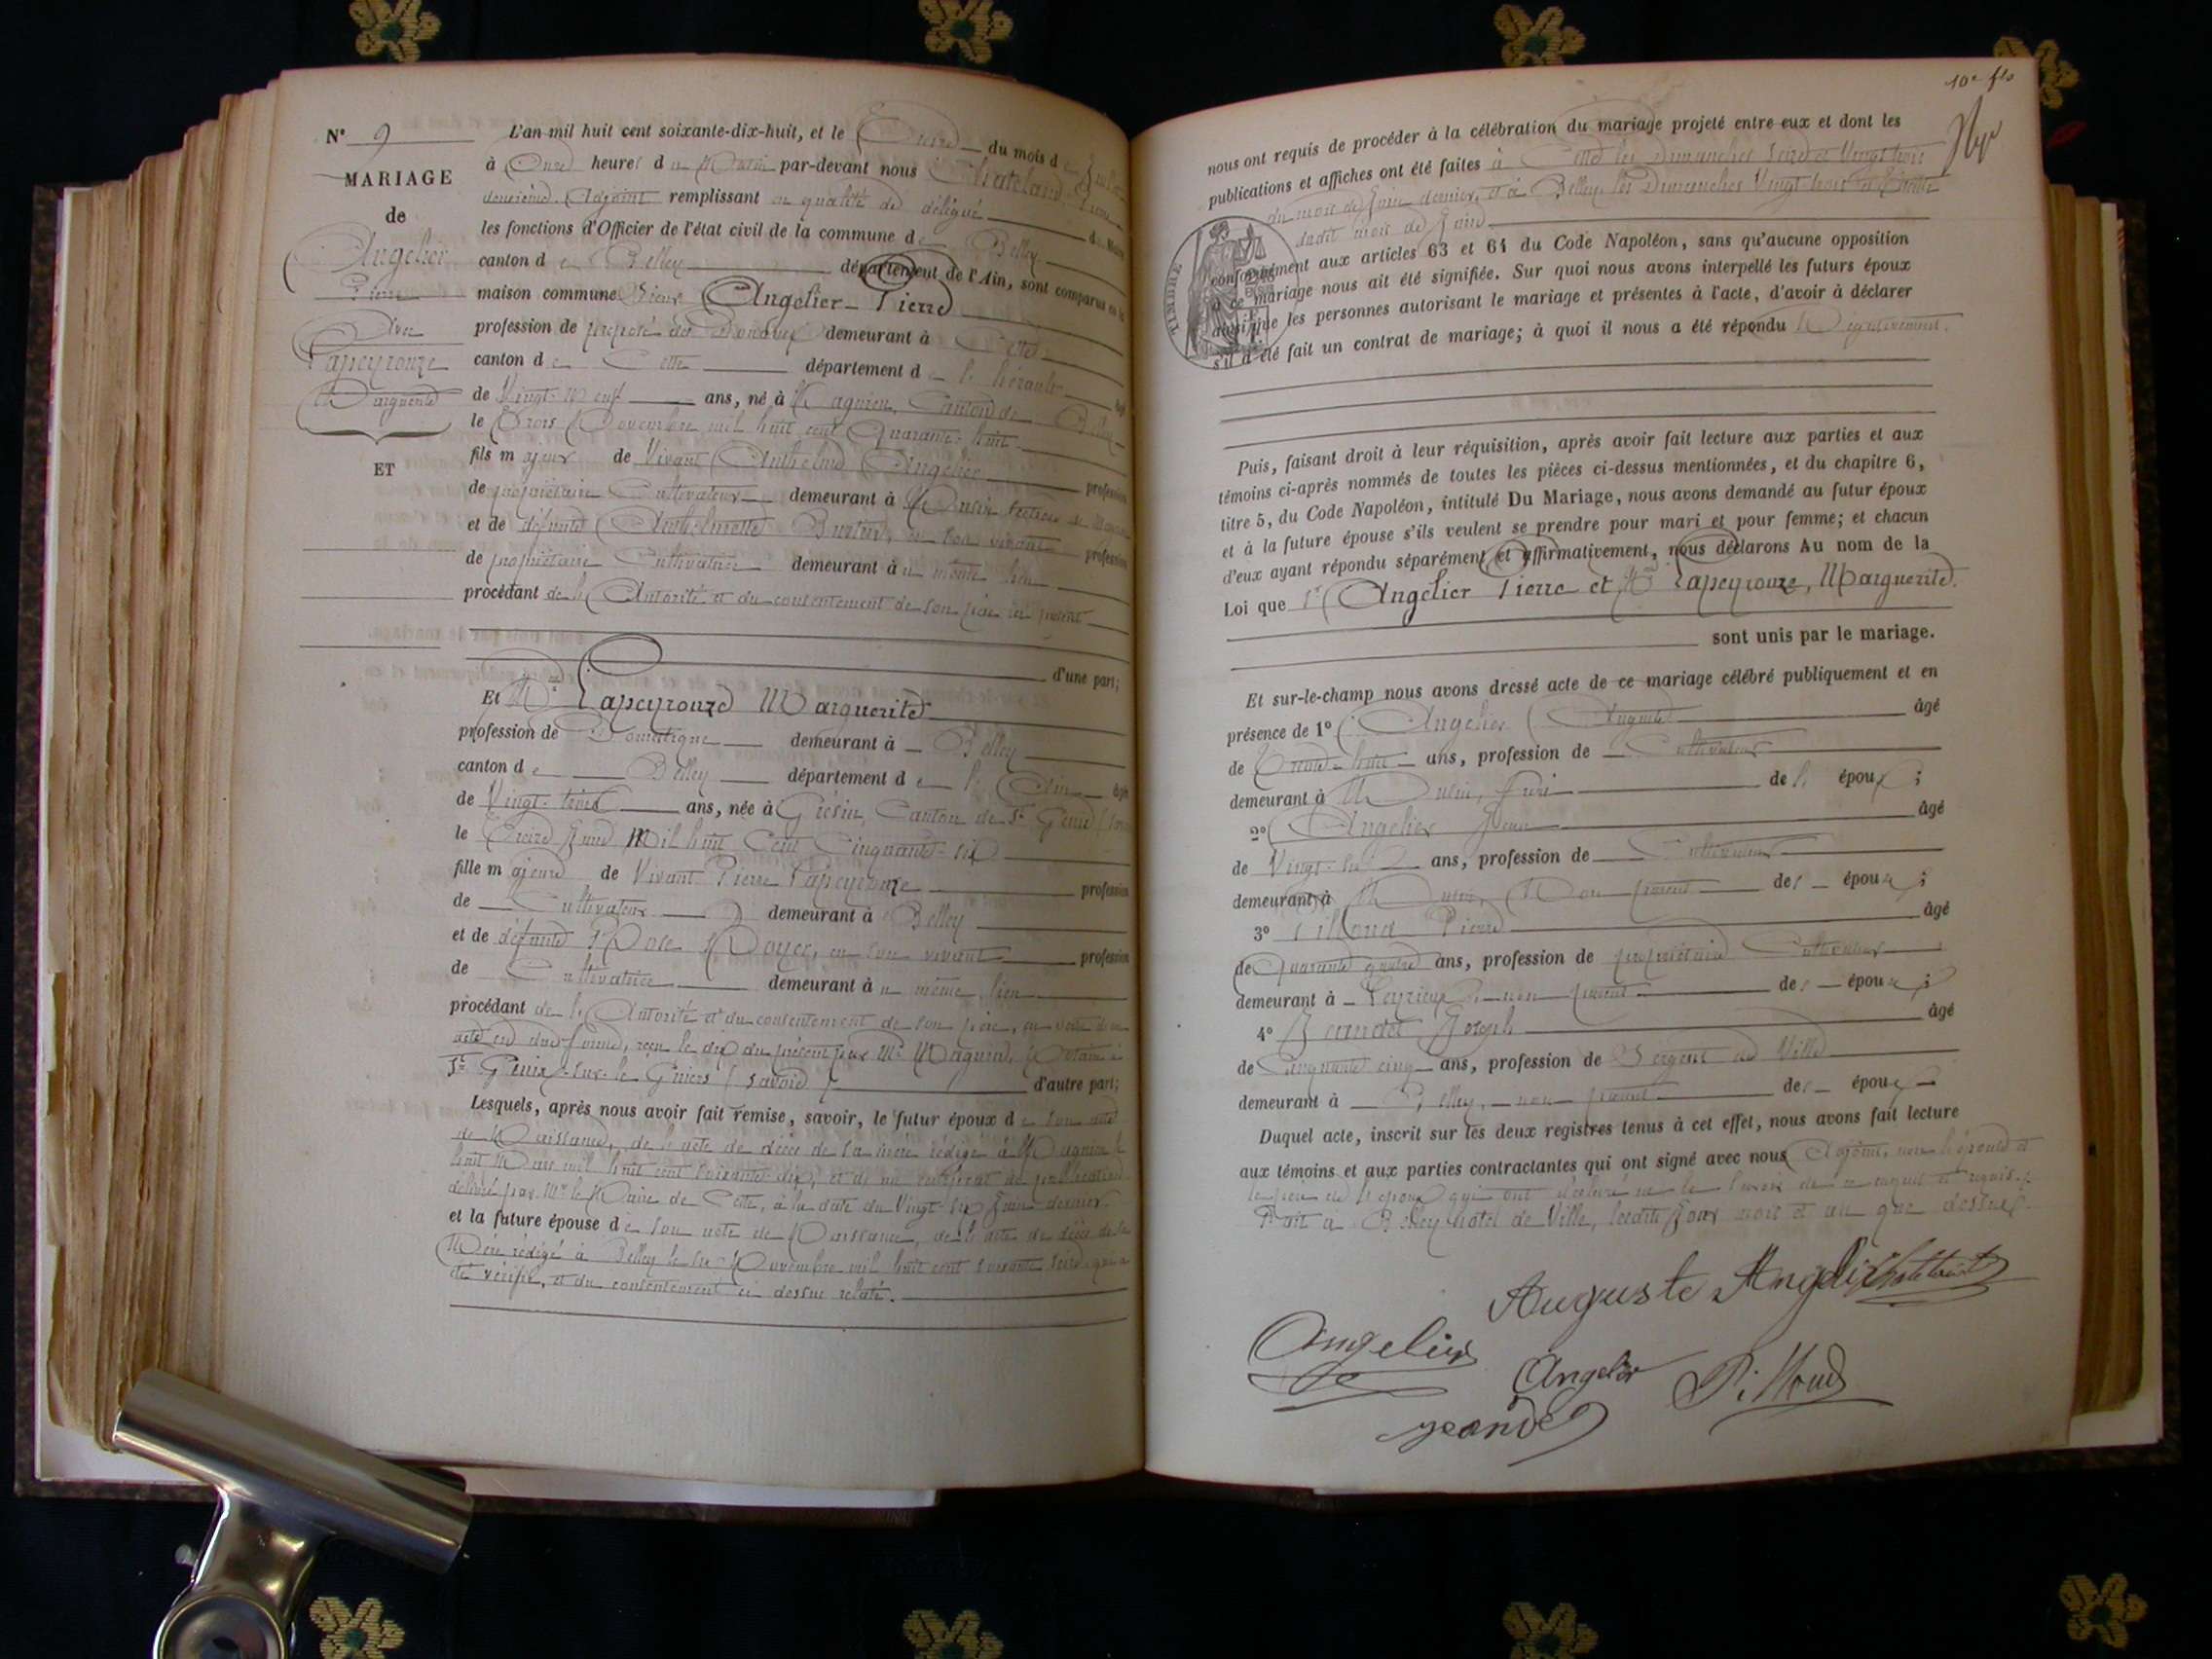 N° 9
MARIAGE
de
Angelier
Pierre
Avec
Lapeyrouze
Marguerite
ET
L'an mil huit cent soixante-dix-huit, et le Treize du mois de Juillet
à Onze heures du Matin par-devant nous Chateland
deuxième Adjoint remplissant en qualité de délégué
les fonctions d'Officier de l'état civil de la commune de Belley
canton de Belley département de l'Ain, sont comparus en la
maison commune Sieur Angelier Pierre
profession de préposé des Douanes demeurant à Cette
canton de Cette département de l'hérault âgé
de Vingt-neuf ans, né à Magnieu, Canton de Belley
le Trois Novembre mil huit cent Quarante-huit
fils majeur de Vivant Anthelme Angelier profession
de propriétaire Cultivateur demeurant à Musin
et de défunte Anthelmette en son vivant profession
de propriétaire Cultivatrice demeurant au même lieu
procédant de l'Autorité et du consentement de son père ici présent
d'une part;
Et Mlle Lapeyrouze Marguerite
profession de Domestique demeurant à Belley
canton de Belley département de l'Ain âgée
de Vingt-deux ans, née à Grésin, Canton de St Genix
le Treize Juin Mil huit Cent Cinquante-six
fille majeure de Vivant Pierre Lapeyrouze profession
de Cultivateur demeurant à Belley
et de défunte Rose Royer, en son vivant profession
de Cultivatrice demeurant au même lieu
procédant de l'Autorité et du consentement de son père, en vertu d'un
acte en due forme, reçu le dix du présent par Me Maguin, Notaire à
St Genix-sur-le Guiers (Savoie) d'autre part;
Lesquels, après nous avoir fait remise, savoir, le futur époux de son acte
de Naissance, de l'acte de décès de sa mère rédigé à Magnieu le
huit Mars mil huit cent soixante-dix, et de un certificat de publication
délivré par Mr le Maire de Cette, à la date du Vingt-six Juin dernier
et la future épouse de son acte de Naissance, de l'acte de décès de sa
Mère rédigé à Belley le six Novembre mil huit cent soixante seize,
vérifié, et du consentement ci dessus relaté.
10e flo
nous ont requis de procéder à la célébration du mariage projeté entre eux et dont les
publications et affiches ont été faites à Cette les Dimanches Seize et Vingt trois
du mois de Juin dernier, et à Belley les Dimanches Vingt trois et trente
dudit mois de Juin
TIMBRE
conformément aux articles 63 et 64 du Code Napoléon, sans qu'aucune opposition
à ce mariage nous ait été signifiée. Sur quoi nous avons interpellé les futurs époux
ainsi que les personnes autorisant le mariage et présentes à l'acte, d'avoir à déclarer
s'il a été fait un contrat de mariage; à quoi il nous a été répondu Négativement.
Puis, faisant droit à leur réquisition, après avoir fait lecture aux parties et aux
témoins ci-après nommés de toutes les pièces ci-dessus mentionnées, et du chapitre 6,
titre 5, du Code Napoléon, intitulé Du Mariage, nous avons demandé au futur époux
et à la future épouse s'ils veulent se prendre pour mari et pour femme; et chacun
d'eux ayant répondu séparément et affirmativement, nous déclarons Au nom de la
Loi que Sr Angelier Pierre et Mlle Lapeyrouze, Marguerite.
sont unis par le mariage.
Et sur-le-champ nous avons dressé acte de ce mariage célébré publiquement et en
présence de 1° Angelier Auguste âgé
de Trente-huit ans, profession de Cultivateur
demeurant à Musin, frère de l'époux;
2° Angelier Jean âgé
de Vingt-six ans, profession de Cultivateur
demeurant à Musin, Non parent des époux;
3° Pilloud Pierre âgé
de Quarante quatre ans, profession de propriétaire Cultivateur
demeurant à Peyrieux non parent des époux;
4° Jeandet Joseph âgé
de Cinquante cinq ans, profession de Sergent de Ville
demeurant à Belley, non parent des époux
Duquel acte, inscrit sur les deux registres tenus à cet effet, nous avons fait lecture
aux témoins et aux parties contractantes qui ont signé avec nous Adjoint, non l'épouse et
le père de l'époux qui ont déclaré ne le savoir de ce enquis et requis.
Fait à Belley hôtel de Ville, lesdits jour mois et an que dessus.
Auguste Angelier Chateland
Angelier
Angelier
Pilloud
jeandet